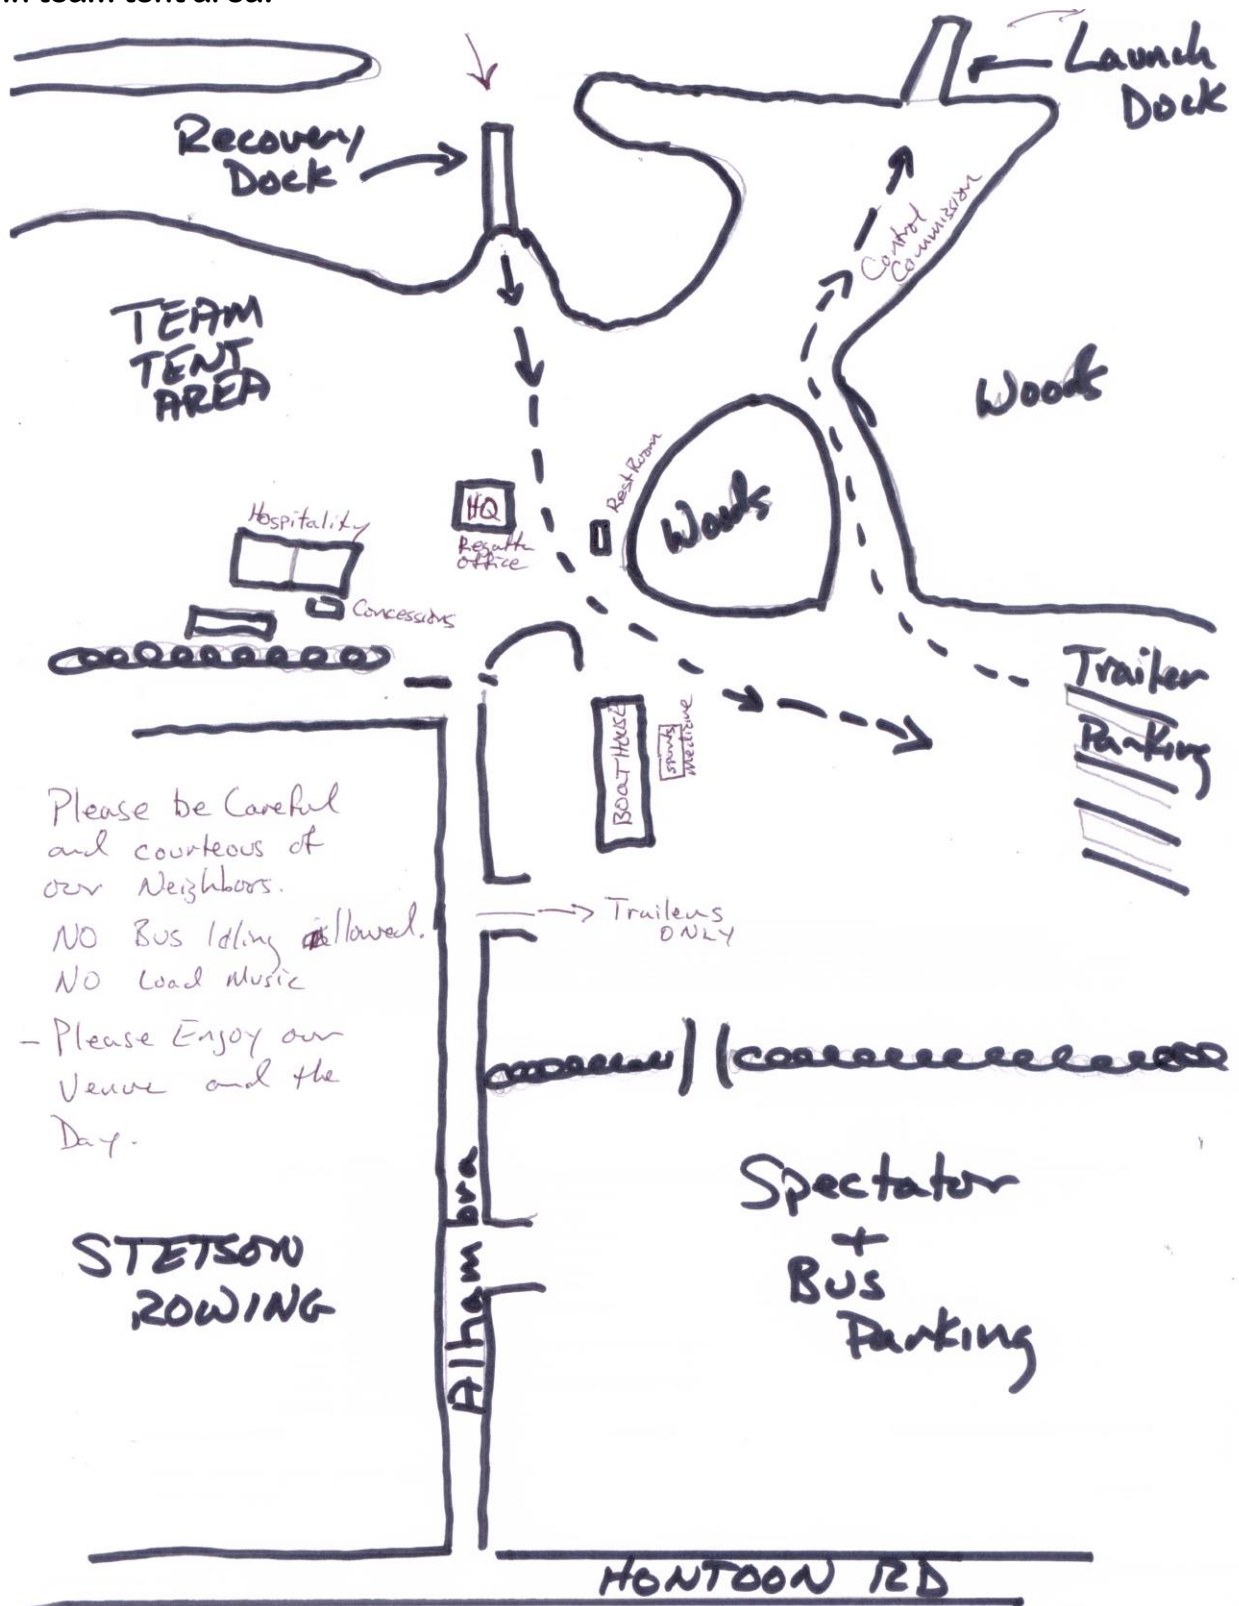 in team tent area.
Launch
Dock
Recovery
Dock
Control
Commission
TEAM
TENT
AREA
Woods
RestRoom
Woods
HQ
Regatta
office
Hospitality
Concessions
Trailer
Parking
BOATHOUSE
Sports
Medicine
Please be Careful
and courteous of
our Neighbors.
NO Bus Idling allowed.
NO Load Music
- Please Enjoy our
Venue and the
Day.
Trailers
ONLY
Spectator
+
Bus
Parking
STETSON
ROWING
Alhambra
HONTOON RD